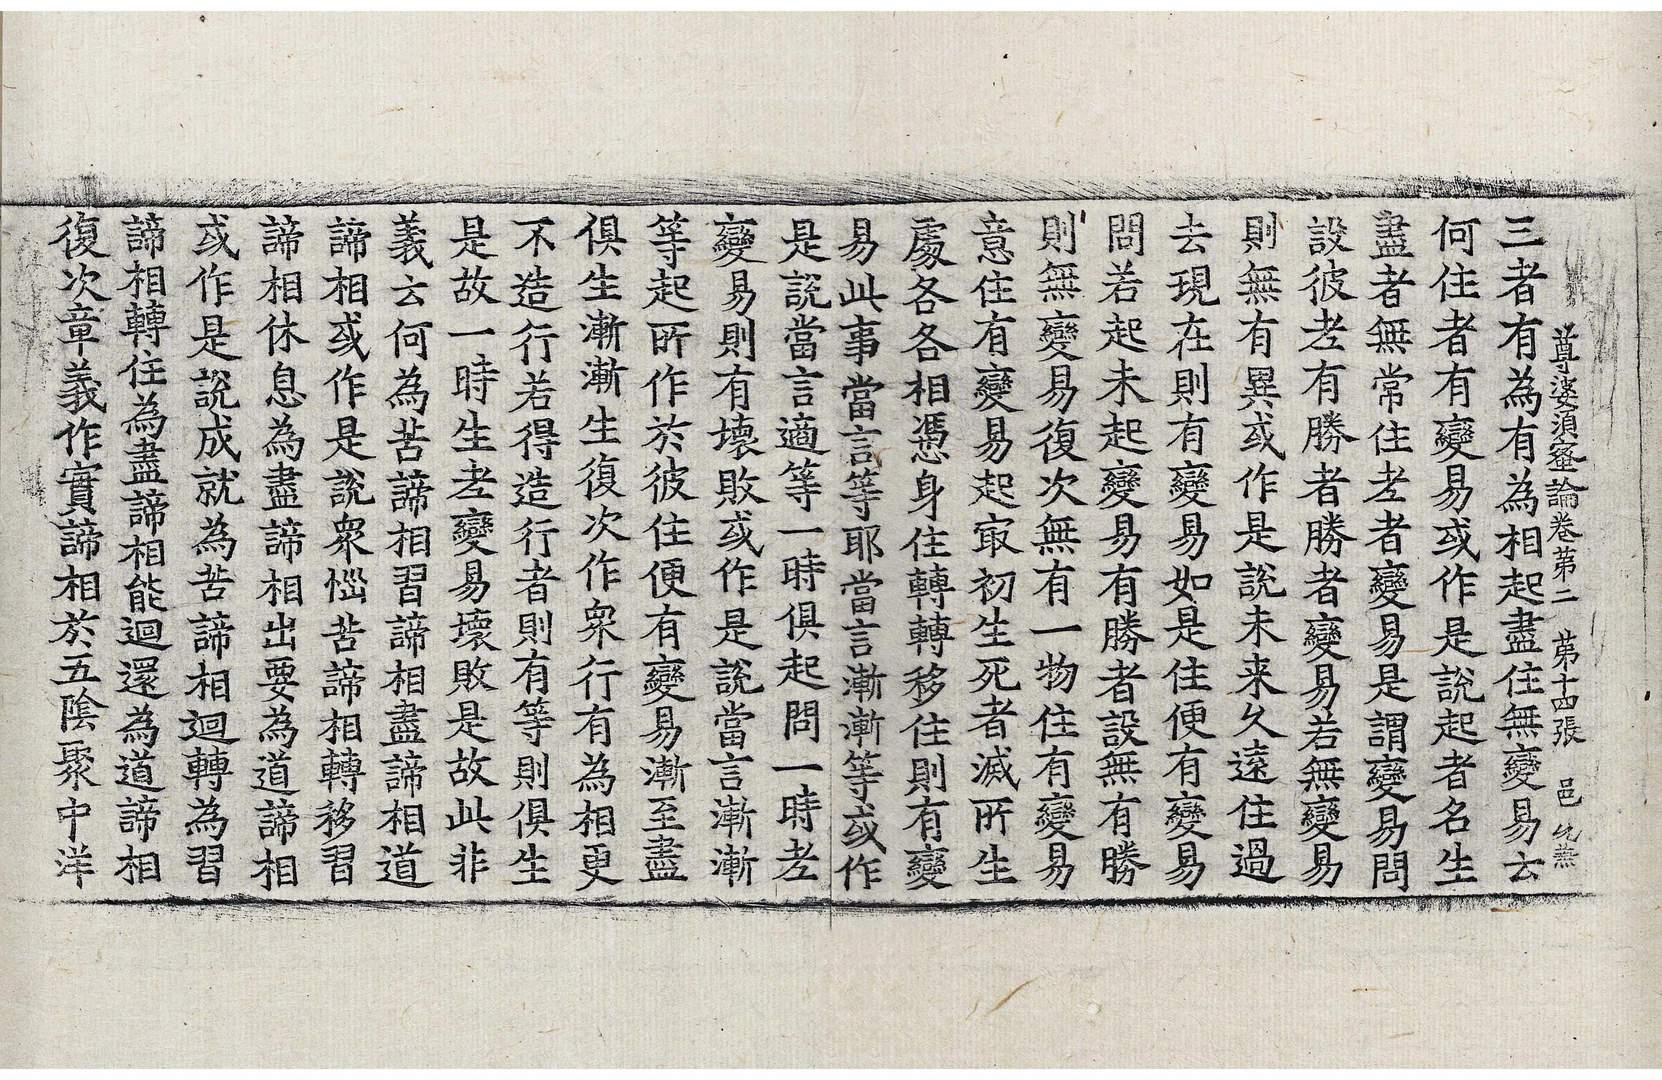 尊婆須蜜論卷第二　第十四張　邑
三者有為有為相起盡住無變易云
何住者有變易或作是說起者名生
盡者無常住老者變易是謂變易問
設彼老有勝者勝者變易若無變易
則無有異或作是說未来久遠住過
去現在則有變易如是住便有變易
問若起未起變易有勝者設無有勝
則無變易復次無有一物住有變易
意住有變易起㝡初生死者滅所生
處各各相憑身住轉轉移住則有變
易此事當言等耶當言漸漸等或作
是說當言適等一時俱起問一時老
變易則有壞敗或作是說當言漸漸
等起所作於彼住便有變易漸至盡
俱生漸漸生復次作衆行有為相更
不造行若得造行者則有等則俱生
是故一時生老變易壞敗是故此非
義云何為苦諦相習諦相盡諦相道
諦相或作是說衆惱苦諦相轉移習
諦相休息為盡諦相出要為道諦相
或作是說成就為苦諦相迴轉為習
諦相轉住為盡諦相能迴還為道諦相
復次章義作實諦相於五陰聚中洋